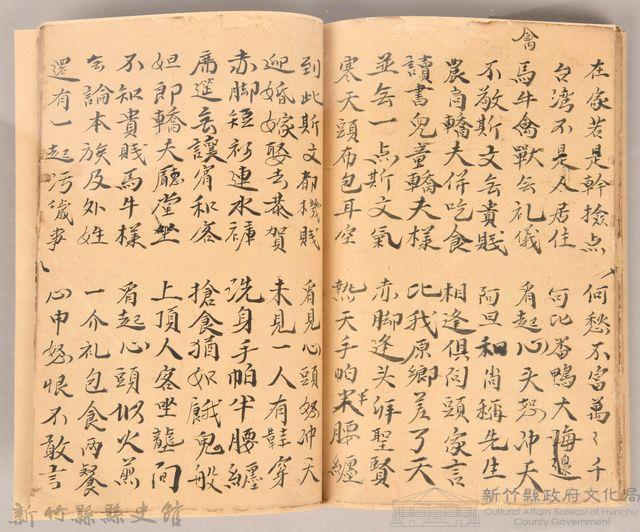 在家若是幹撿点 何愁不富萬〻千
台湾不是人居住 句比番鴨大海邊
禽
馬牛禽獸無礼儀 看起心头怒冲天
不敬斯文無貴賤 阿旦和尚稱先生
農商轎夫併吃食 相逢俱问頭家言
讀書兒童轎夫樣 比我原鄉差了天
並無一点斯文氣 赤脚逢头拜聖賢
寒天頭布包耳空 熱天手帕半腰纏
到此斯文都賤 看見心頭怒冲天
迎婚嫁娶去恭賀 未見一人有鞋穿
赤脚短衫連水褲 洗身手帕半腰纏
席筵無讓肩和客 搶食猶如餓鬼般
妲郎轎夫廳堂坐 上頂人客坐壟间
不知貴賤馬牛樣 看起心頭似火煎
無論本族及外姓 一介礼包食兩餐
還有一起污穢事 心中怒恨不敢言
新竹縣縣史館
新竹縣政府文化局
Cultural Affairs Bureau of Hsinchu
County Government